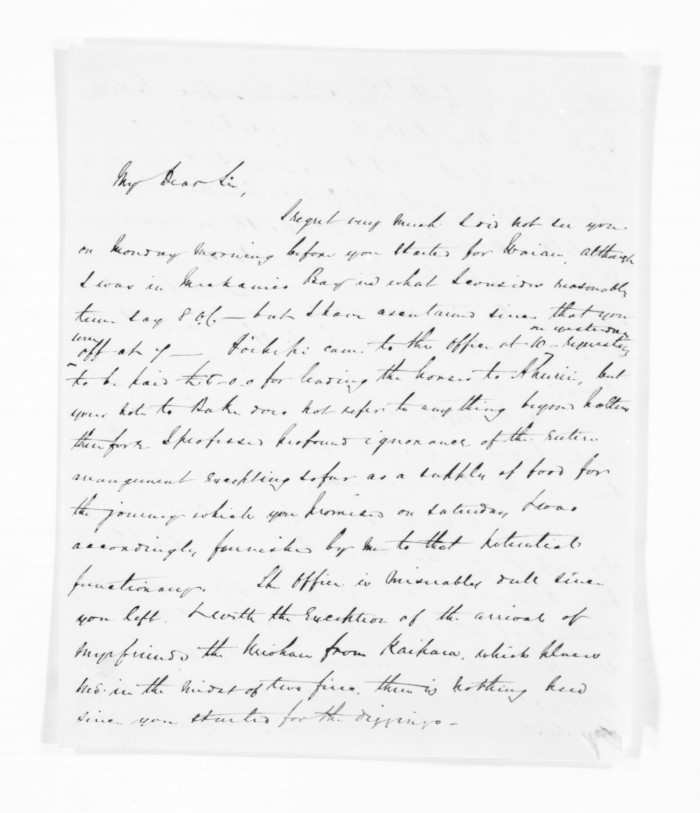 My Dear Sir,
I regret very much I did not see you
on Monday morning before you started for Waiau, although
I was in Mechanics Bay in what I consider reasonable
time say 8 o.C. — but I have ascertained since that you
were off at 7 — came to the Office at 10 on yesterday requesting
to be paid for leading the horses to Ahuriri, but
your note to Baker does not refer to anything beyond
therefore I professed profound ignorance of the entire
arrangement excepting so far as a supply of food for
the journey which you promised on Saturday & was
accordingly furnished by me to that potential
functionary. The Office is miserably dull since
you left. & with the exception of the arrival of
my friends the from Kaipara, which places
me in the midst of two fires, there is nothing here
since you started for the diggings —